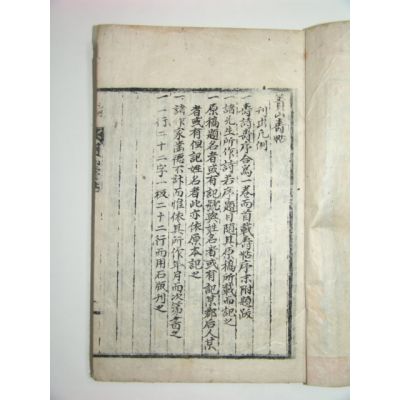 山壽帖
刊出凡例
一壽詩壽序合爲一卷而首載壽帖序末附題跋
一諸先生所作詩若序題目隨其原稿所載而記之
一原稿題名者或有記號與姓名者或有記某鄕后人某
者或有但記姓名者此亦依原本記之
一諸作家齒德不計而惟依其所作年月而次第書之
一一行二十二字一板二十二行而用石版刊之